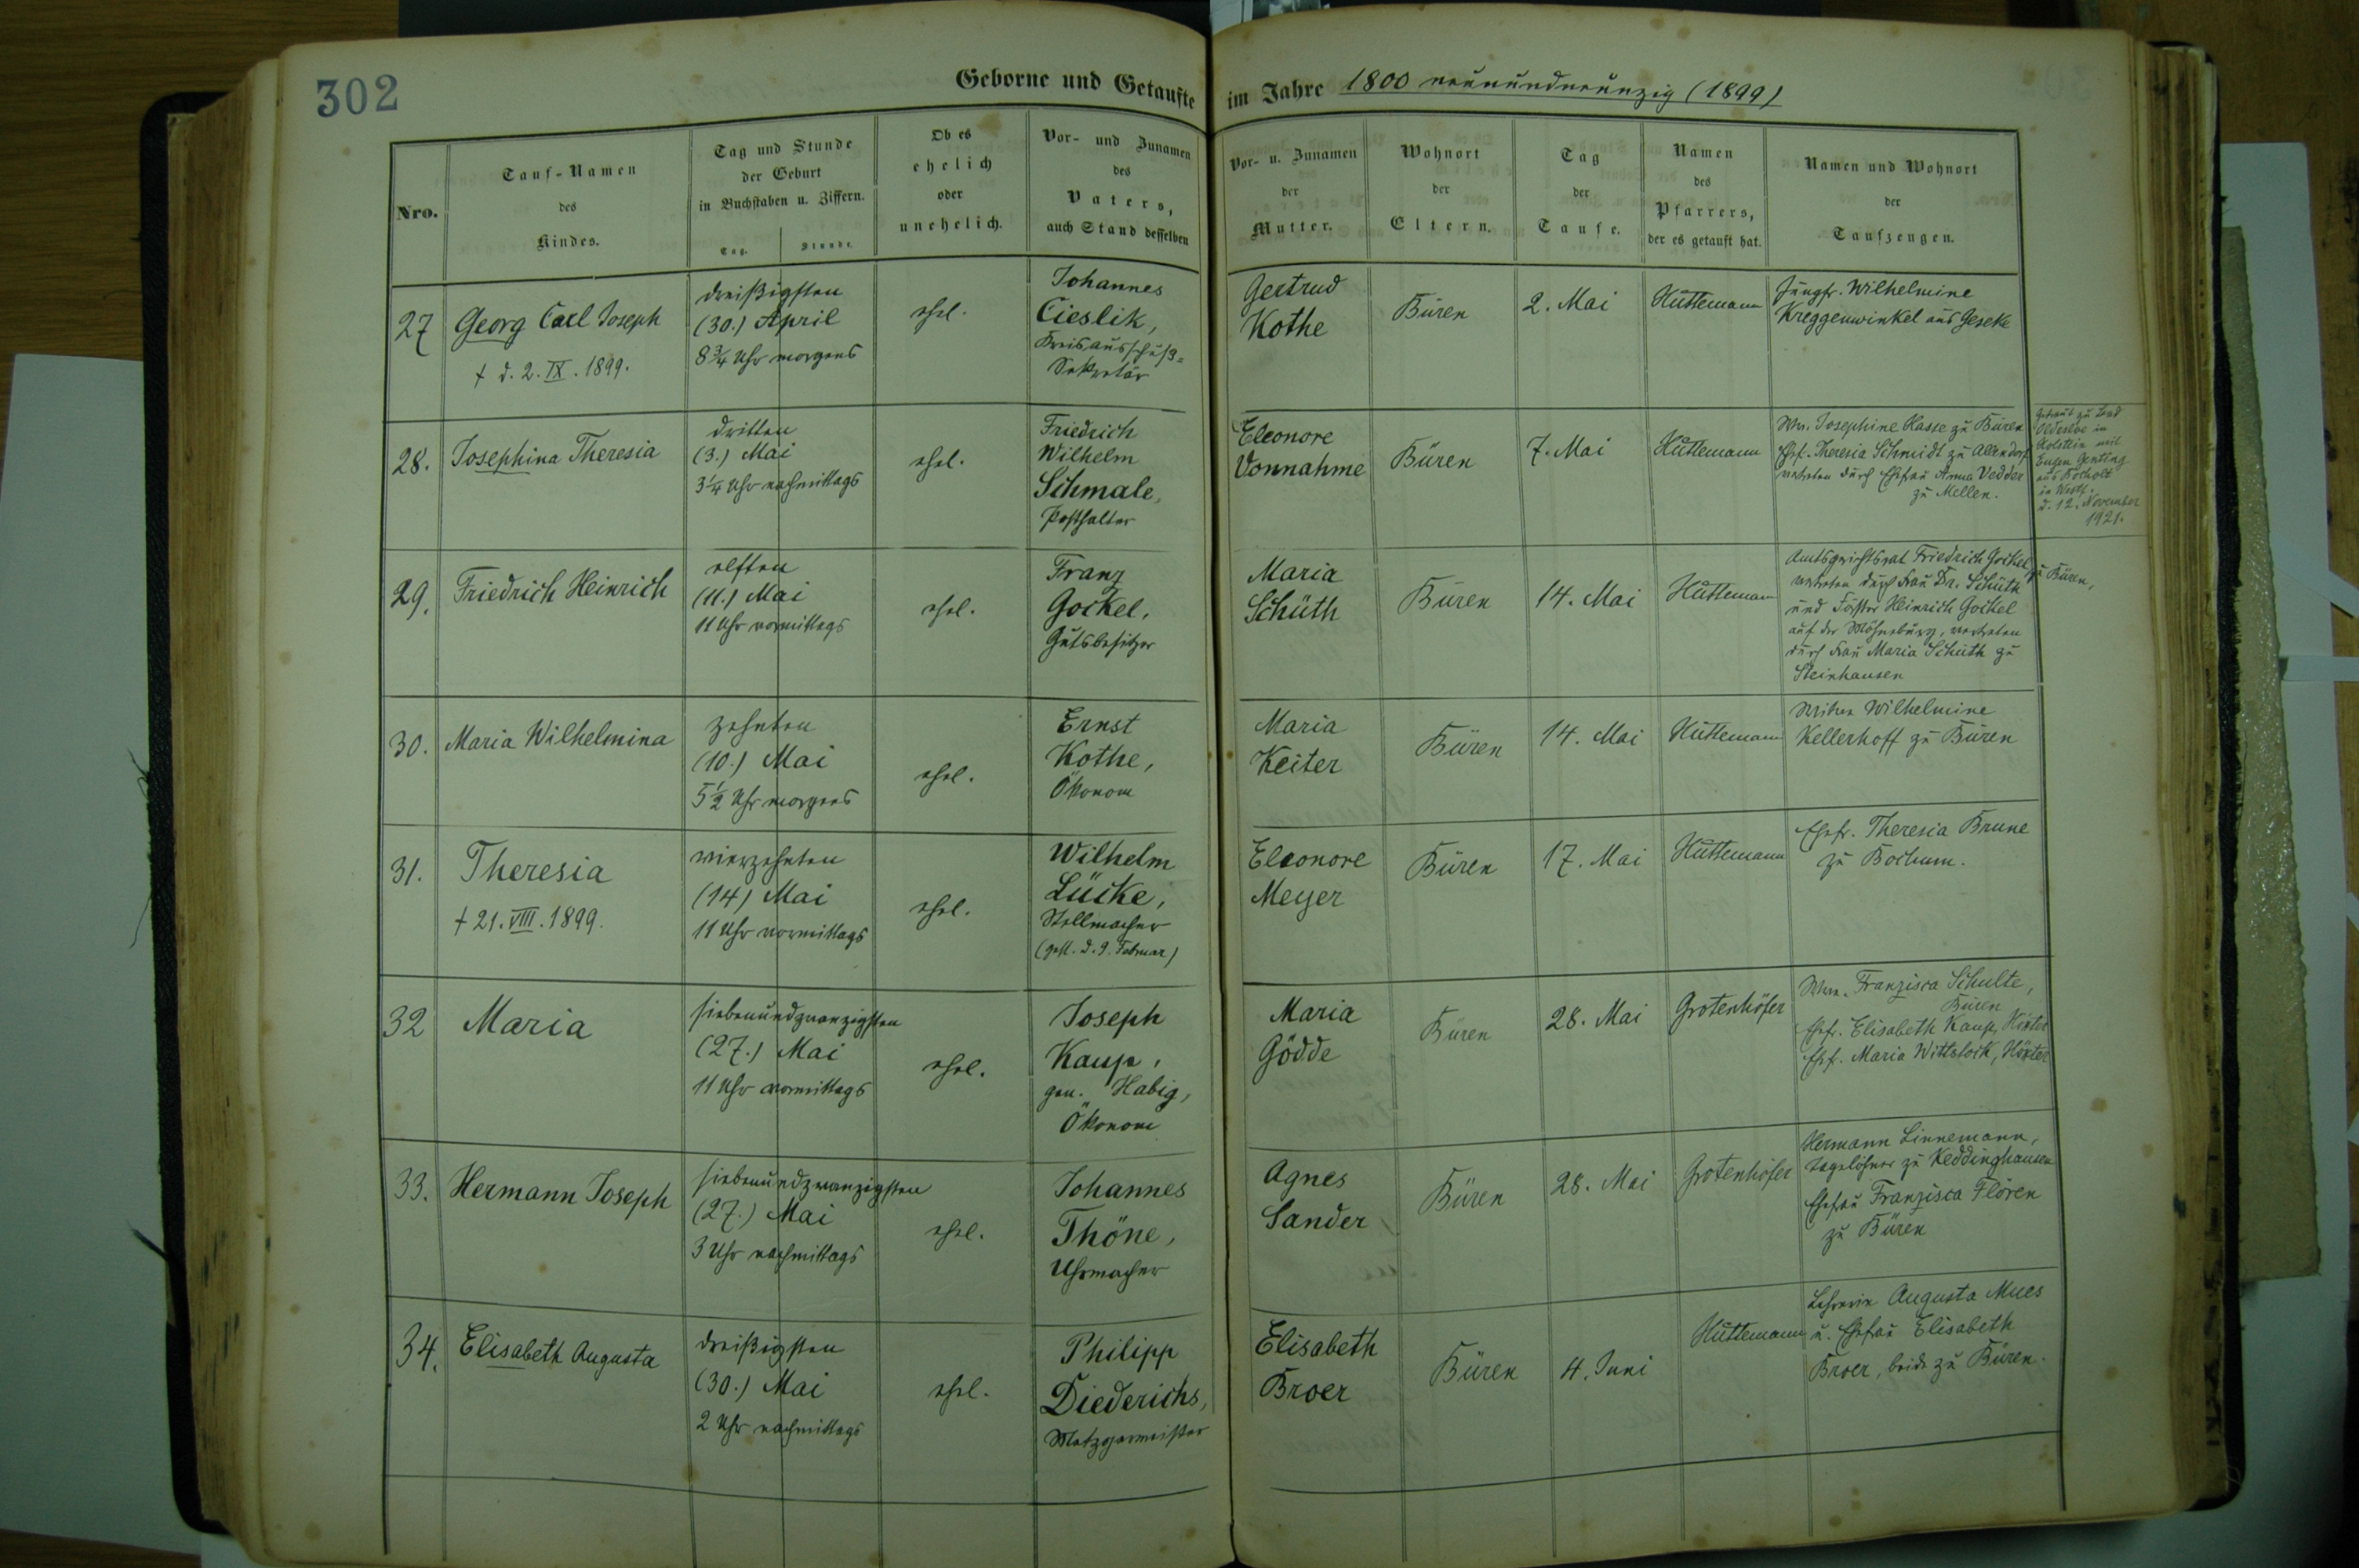 302
Geborne und Getaufte im Jahre 1800 neunundneunzig (1899)
Nro.
Tauf-Namen
des
Kindes.
Tag und Stunde
der Geburt
in Buchstaben u. Ziffern.
Tag.
Stunde
Ob es
ehelich
oder
unehelich.
Vor- und Zunamen
des
Vaters,
auch Stand desselben
Vor- u. Zunamen
der
Mutter.
Wohnort
der
Eltern.
Tag
der
Taufe.
Namen
des
Pfarrers,
der es getauft hat.
Namen und Wohnort
der
Taufzeugen.
27
Georg Carl Joseph
† d. 2. IX. 1899.
dreißigsten
(30.) April
8 3/4 Uhr morgens
ehel.
Johannes
Cieslik,
Kreisausschuß-
Sekretär
Gertrud
Kothe
Büren
2. Mai
Hüttemann
Jungfr. Wilhelmine
Kreggenwinkel aus Geseke
28.
Josephina Theresia
dritten
(3.) Mai
3 1/4 Uhr nachmittags
ehel.
Friedrich
Wilhelm
Schmale,
Posthalter
Eleonore
Vonnahme
Büren
7. Mai
Hüttemann
Ww. Josephine Kasse zu Büren
Ehf. Theresia Schmidt zu Allendorf
vertreten durch Ehefrau Anna Vedder
zu Mellen.
Getraut zu Bad
Oldesloe in
Holstein mit
Eugen Genting
aus Bocholt
in Westf.
d. 12. November
1921.
29.
Friedrich Heinrich
elften
(11.) Mai
11 Uhr vormittags
ehel.
Franz
Gockel,
Gutsbesitzer
Maria
Schüth
Büren
14. Mai
Hüttemann
Amtsgerichtsrat Friedrich Gockel zu Büren,
vertreten durch Frau Dr. Schüth
und Förster Heinrich Gockel
auf der Möhneburg, vertreten
durch Frau Maria Schüth zu
Steinhausen
30.
Maria Wilhelmina
zehnten
(10.) Mai
5 1/2 Uhr morgens
ehel.
Ernst
Kothe,
Ökonom
Maria
Keiter
Büren
14. Mai
Hüttemann
Witwe Wilhelmine
Kellerhoff zu Büren
31.
Theresia
† 21. VIII. 1899.
vierzehnten
(14) Mai
11 Uhr vormittags
ehel.
Wilhelm
Lücke,
Stellmacher
(gest. d. 9. Februar)
Eleonore
Meyer
Büren
17. Mai
Hüttemann
Ehefr. Theresia Brune
zu Bochum.
32
Maria
siebenundzwanzigsten
(27.) Mai
11 Uhr vormittags
ehel.
Joseph
Kaup,
gen. Habig,
Ökonom
Maria
Gödde
Büren
28. Mai
Grotenhöfer
Wwe. Franzisca Schulte,
Büren
Ehf. Elisabeth Kaup, Höxter
Ehf. Maria Wittstock, Höxter
33.
Hermann Joseph
siebenundzwanzigsten
(27.) Mai
3 Uhr nachmittags
ehel.
Johannes
Thöne,
Uhrmacher
Agnes
Sander
Büren
28. Mai
Grotenhöfer
Hermann Linnemann,
Tagelöhner zu Keddinghausen
Ehefrau Franzisca Flören
zu Büren
34.
Elisabeth Augusta
dreißigsten
(30.) Mai
2 Uhr nachmittags
ehel.
Philipp
Diederichs,
Metzgermeister
Elisabeth
Broer
Büren
4. Juni
Hüttemann
Lehrerin Augusta Mues
u. Ehefrau Elisabeth
Broer, beide zu Büren.